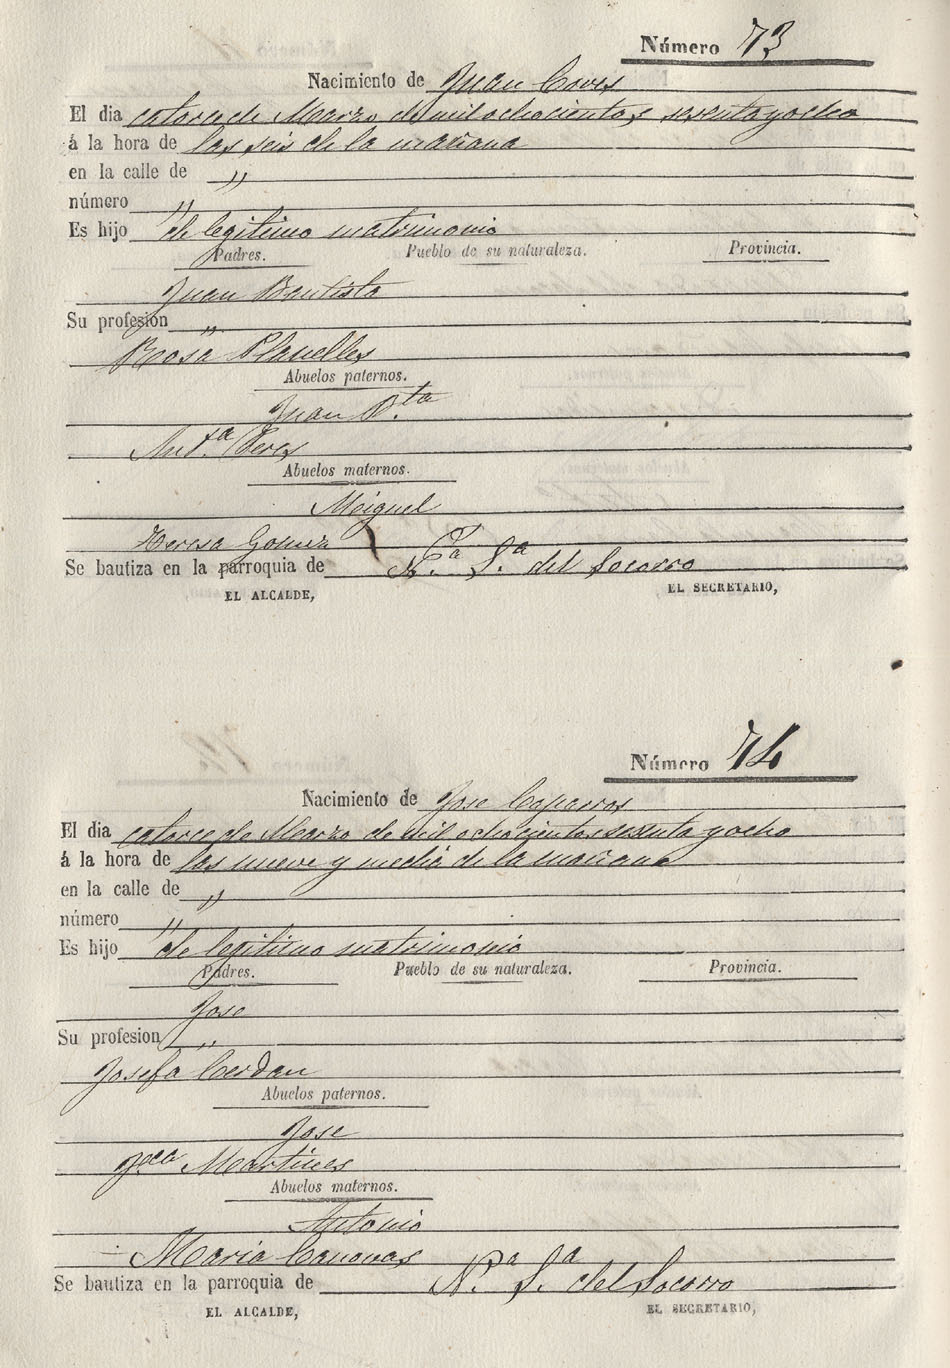 Número 73
Nacimiento de Juan Coves
El dia catorce de Marzo de mil ochocientos sesenta y ocho
á la hora de las seis de la mañana
en la calle de "
número "
Es hijo de legitimo matrimonio
Padres. Pueblo de su naturaleza. Provincia.
Juan Bautista
Su profesión "
Rosa Planelles
Abuelos paternos.
Juan B.ta
Ant.a Peres
Abuelos maternos.
Miguel
Teresa Gomez
Se bautiza en la parroquia de N.a S.a del Socorro
EL ALCALDE, EL SECRETARIO,
Número 74
Nacimiento de Jose Caparros
El dia catorce de Marzo de mil ochocientos sesenta y ocho
á la hora de las nueve y media de la mañana
en la calle de "
número "
Es hijo de legitimo matrimonio
Padres. Pueblo de su naturaleza. Provincia.
Jose
Su profesion "
Josefa Cerdan
Abuelos paternos.
Jose
Fca Martines
Abuelos maternos.
Antonio
Maria Canovas
Se bautiza en la parroquia de N.a S.a del Socorro
EL ALCALDE, EL SECRETARIO,